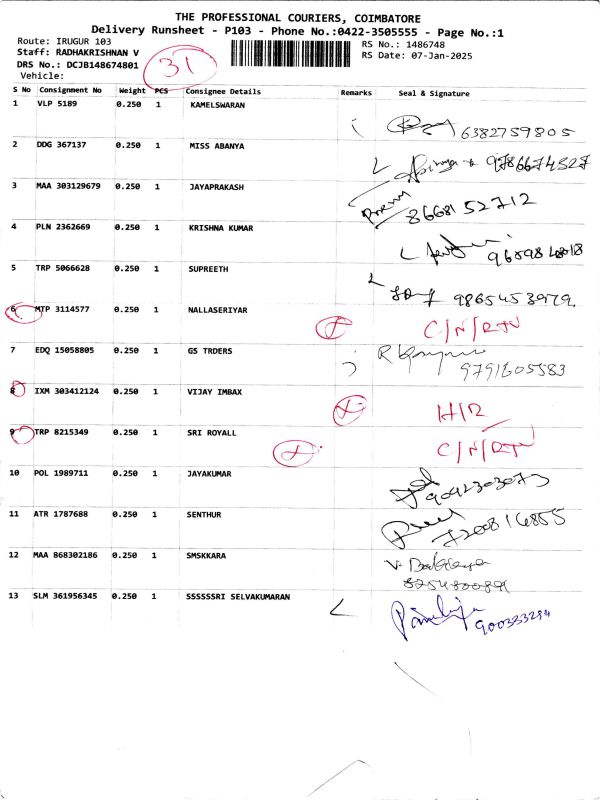 THE PROFESSIONAL COURIERS, COIMBATORE
Delivery Runsheet - P103 - Phone No.:0422-3505555 - Page No.:1
Route: IRUGUR 103
RS No.: 1486748
Staff: RADHAKRISHNAN V
RS Date: 07-Jan-2025
DRS No.: DCJB148674801
31
Vehicle:
S No Consignment No Weight PCS Consignee Details Remarks Seal & Signature
1 VLP 5189 0.250 1 KAMELSWARAN
6382759805
2 DDG 367137 0.250 1 MISS ABANYA
9786674527
3 MAA 303129679 0.250 1 JAYAPRAKASH
8668152712
4 PLN 2362669 0.250 1 KRISHNA KUMAR
5 TRP 5066628 0.250 1 SUPREETH
6 MTP 3114577 0.250 1 NALLASERIYAR C/N/RTN
7 EDQ 15058805 0.250 1 GS TRDERS
9791605583
8 IXM 303412124 0.250 1 VIJAY IMBAX
9 TRP 8215349 0.250 1 SRI ROYALL C/N/RTN
10 POL 1989711 0.250 1 JAYAKUMAR
9042303073
11 ATR 1787688 0.250 1 SENTHUR
7200816855
12 MAA 868302186 0.250 1 SMSKKARA
13 SLM 361956345 0.250 1 SSSSSSRI SELVAKUMARAN